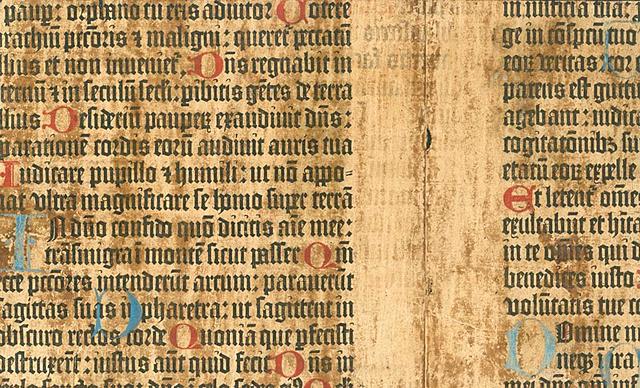 paup̄: orphano tu eris adiutor Cōtere
rachiū pctōris ⁊ maligni: queret᷑ pctātū
llius et non inueniet᷑. Dn̄s regnabit in
ternū ⁊ in seculū secli: p̱ibitis gētes de terra
llius Desideriū paupeꝝ exaudiuit dn̄s:
paratione cordis eorū audiuit auris tua
Iudicare pupillo ⁊ humili: ut nō appo-
nat vltra magnificare se homo super terrā
IN dn̄o confido quō dicitis aīe mee:
trāsmigra ī montē sicut passer Qm̄
ecce pctōres intenderūt arcum: parauerūt
sagittas suas in pharetra: ut sagittent in
obscuro rectos corde Quoniam que pfecisti
destruxerūt: iustus aūt quid fecit Dn̄s in
in iusticia tua:
ge in cōspectu tuo
eoꝝ veritas cor e
patens est guttu
agebant: iudica
cogitatōnibꝫ su
etatū eoꝝ expelle
Et letent᷑ om̄e
exultabunt et hīta
in te om̄es qui d
benedices iusto
volūtatis tue
Domine n
neqꝫ ī ira